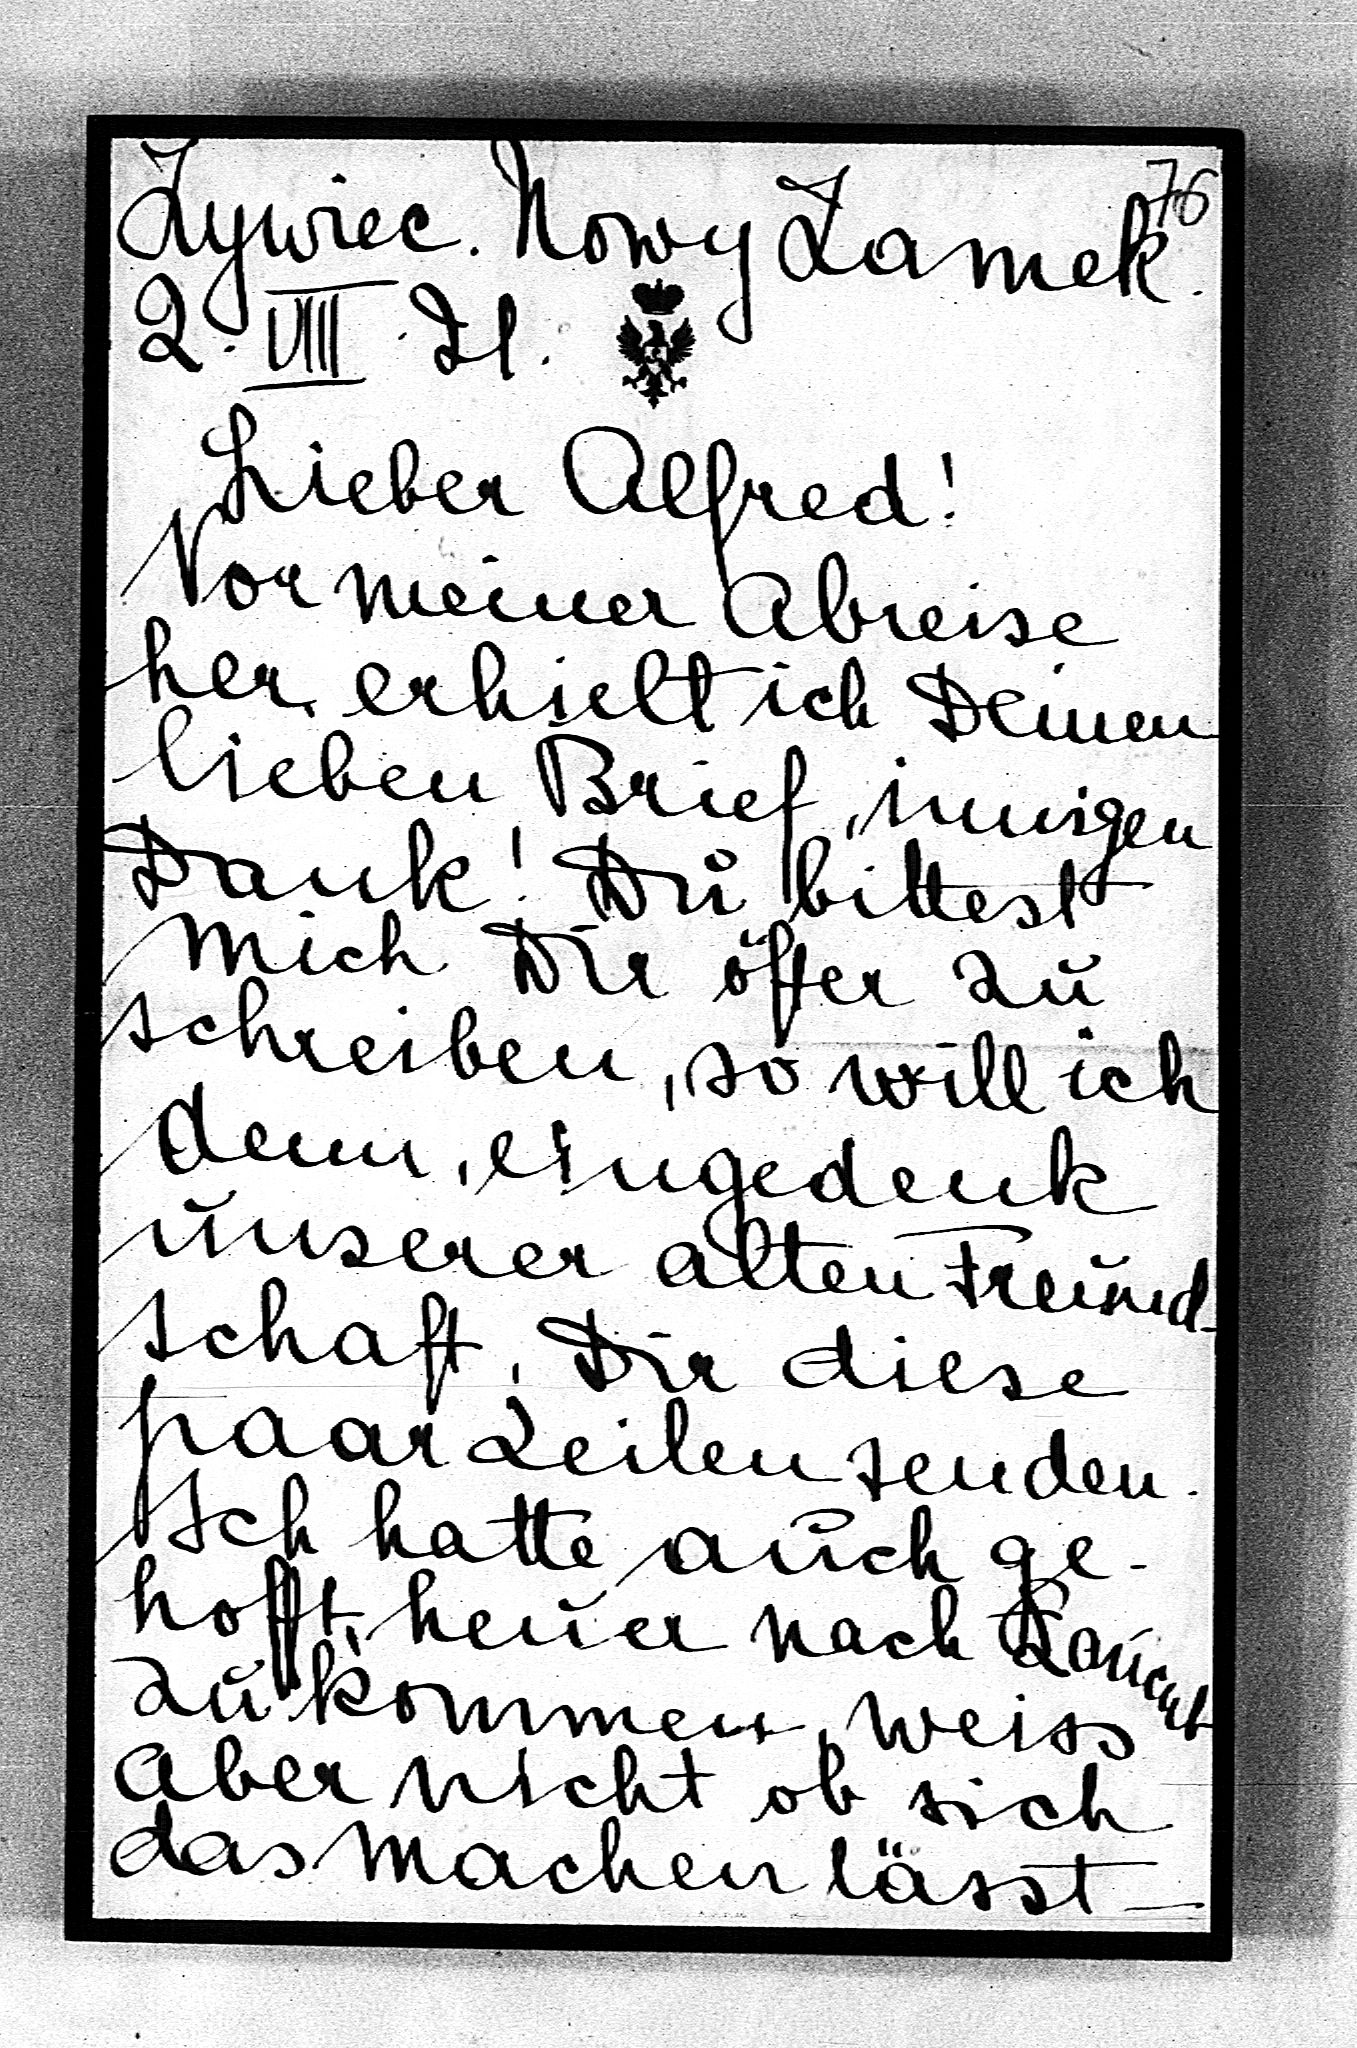 76
Zywiec. Nowy Zamek.
2. VIII. 21.
Lieber Alfred!
Vor meiner Abreise
her, erhielt ich Deinen
lieben Brief, innigen
Dank! Du bittest
mich Dir öfter zu
schreiben, so will ich
denn, eingedenk
unserer alten Freund-
schaft, Dir diese
paar Zeilen senden.
Ich hatte auch ge-
hofft, heuer nach Lancut
zu kommen, weiss
aber nicht ob sich
das machen lässt —